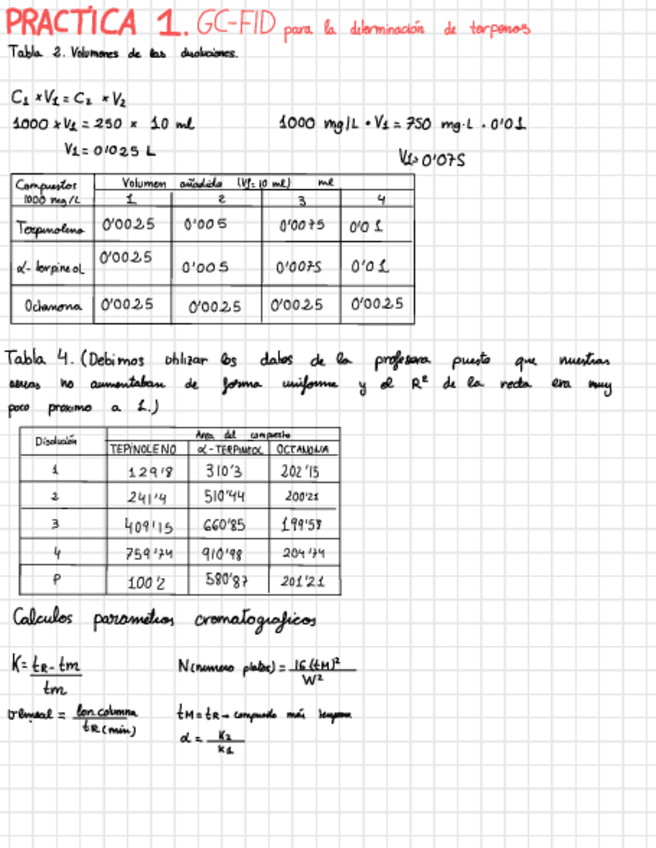 PRACTICA 1. GC-FID para la determinación de terpenos
Tabla 2. Volumenes de las disoluciones.
C₁ × V₁ = C₂ × V₂
1000 × V₁ = 250 × 10 ml
1000 mg/L · V₁ = 750 mg·L · 0'01
V₁ = 0'025 L
V₁ > 0'075
Compuestos 1000 mg/L Volumen añadido (Vf = 10 ml) ml
1 2 3 4
Terpinoleno 0'0025 0'005 0'0075 0'01
α-terpineol 0'0025 0'005 0'0075 0'01
Octanona 0'0025 0'0025 0'0025 0'0025
Tabla 4. (Debimos utilizar los datos de la profesora puesto que nuestras
areas no aumentaban de forma uniforme y el R² de la recta era muy
poco proximo a 1.)
Disolución Area del compuesto
TEPINOLENO α-TERPINEOL OCTANONA
1 129'8 310'3 202'15
2 241'4 510'44 200'21
3 409'15 660'85 199'58
4 759'74 910'98 204'74
P 100'2 580'87 201'21
Calculos parametros cromatograficos
K = tR - tm / tm
N (numero platos) = 16 (tM)² / W²
= lon columna / tR (min)
tM = tR → compuesto más
α = K₂ / K₁